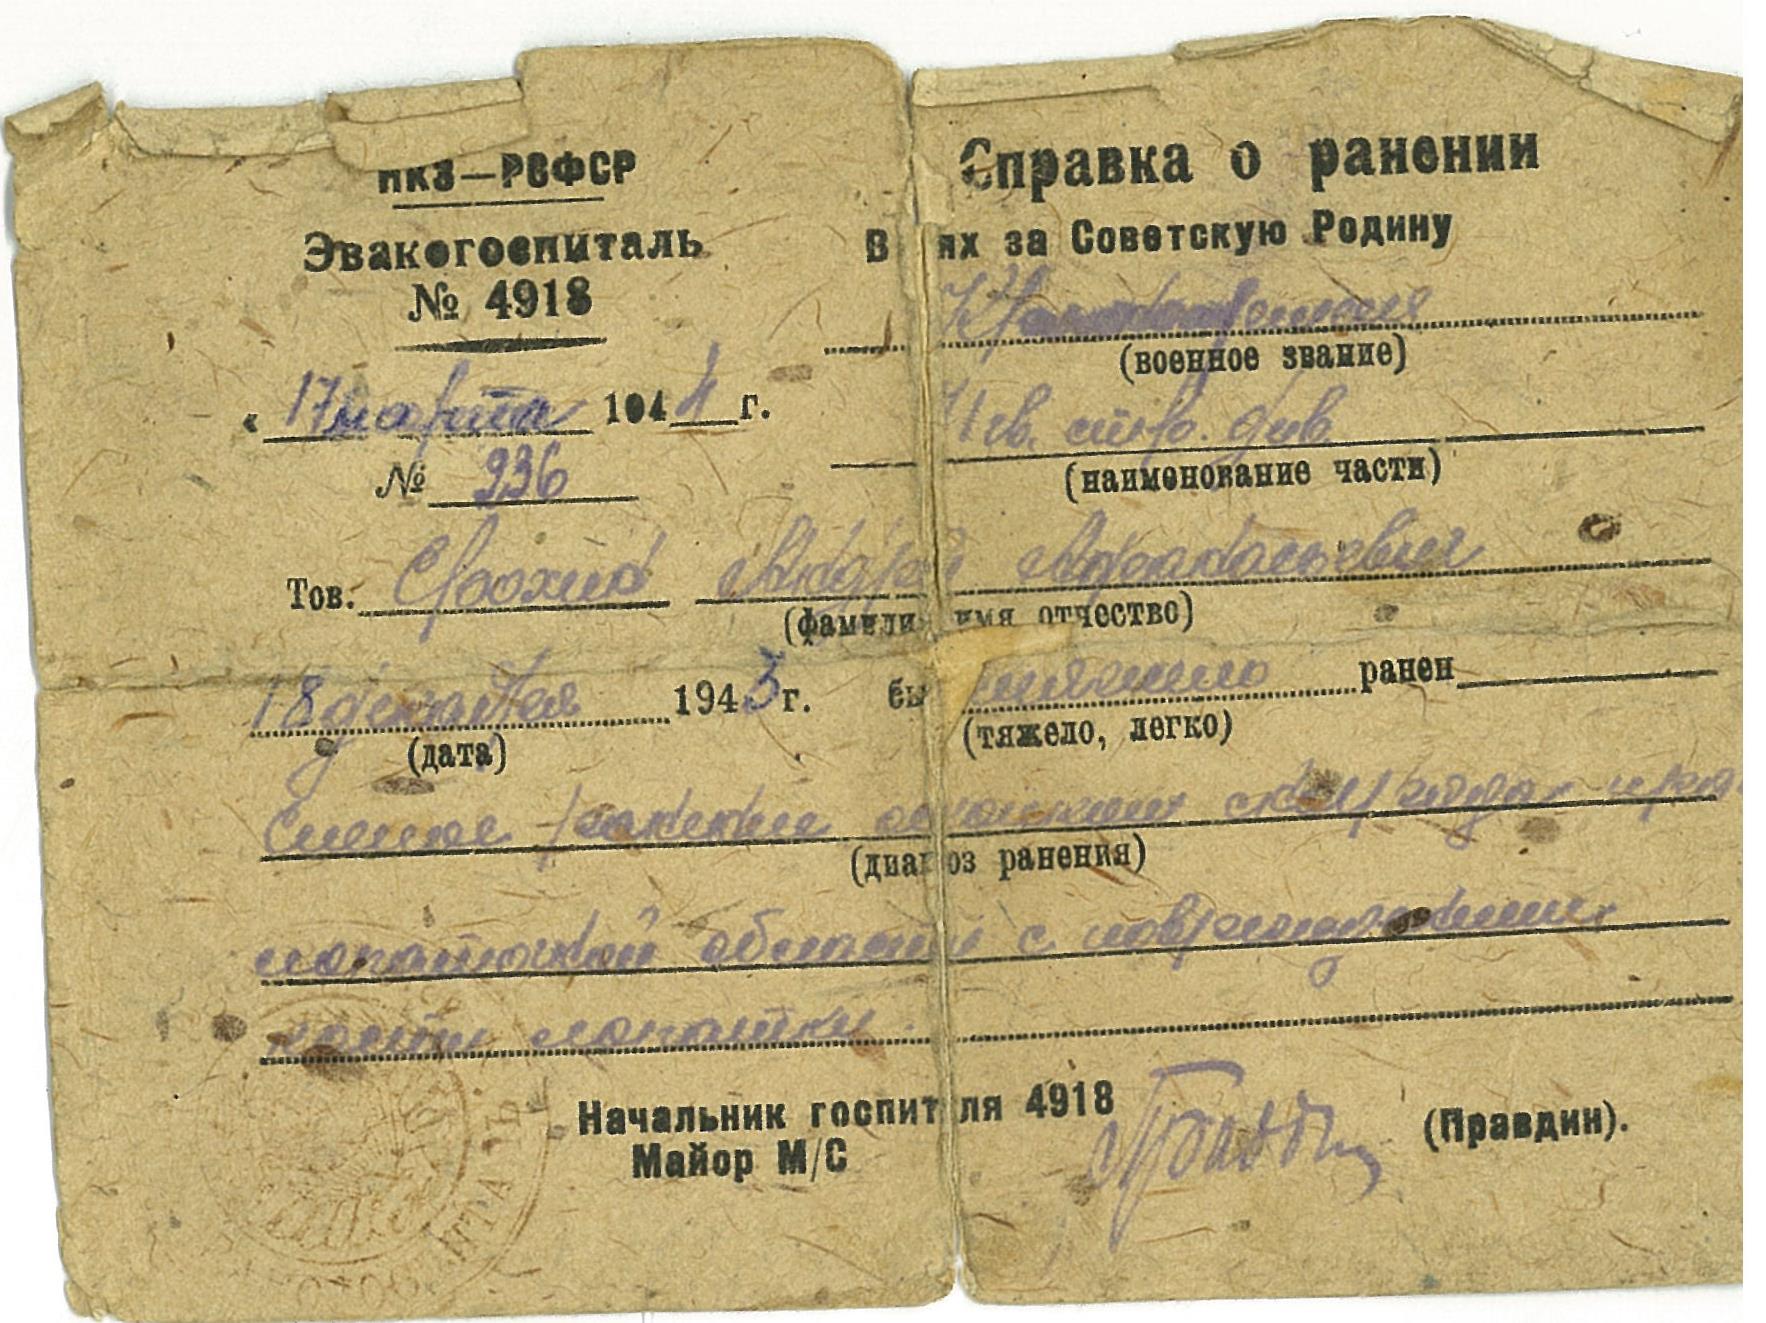 НКЗ—РСФСР
Эвакогоспиталь
№ 4918
« 17 марта 1944 г.
№ 936
Справка о ранении
В ях за Советскую Родину
Красноармеец
(военное звание)
гв. стр. див.
(наименование части)
Тов. Ерохин Андрей Афанасьевич
(фамилия имя отчество)
18 декабря 1943 г. бы тяжело ранен
(дата) (тяжело, легко)
Слепое ранение осколком снаряда
(диагноз ранения)
лопаточной области с повреждением
кости лопатки.
Начальник госпиталя 4918
Майор М/С
(Правдин).